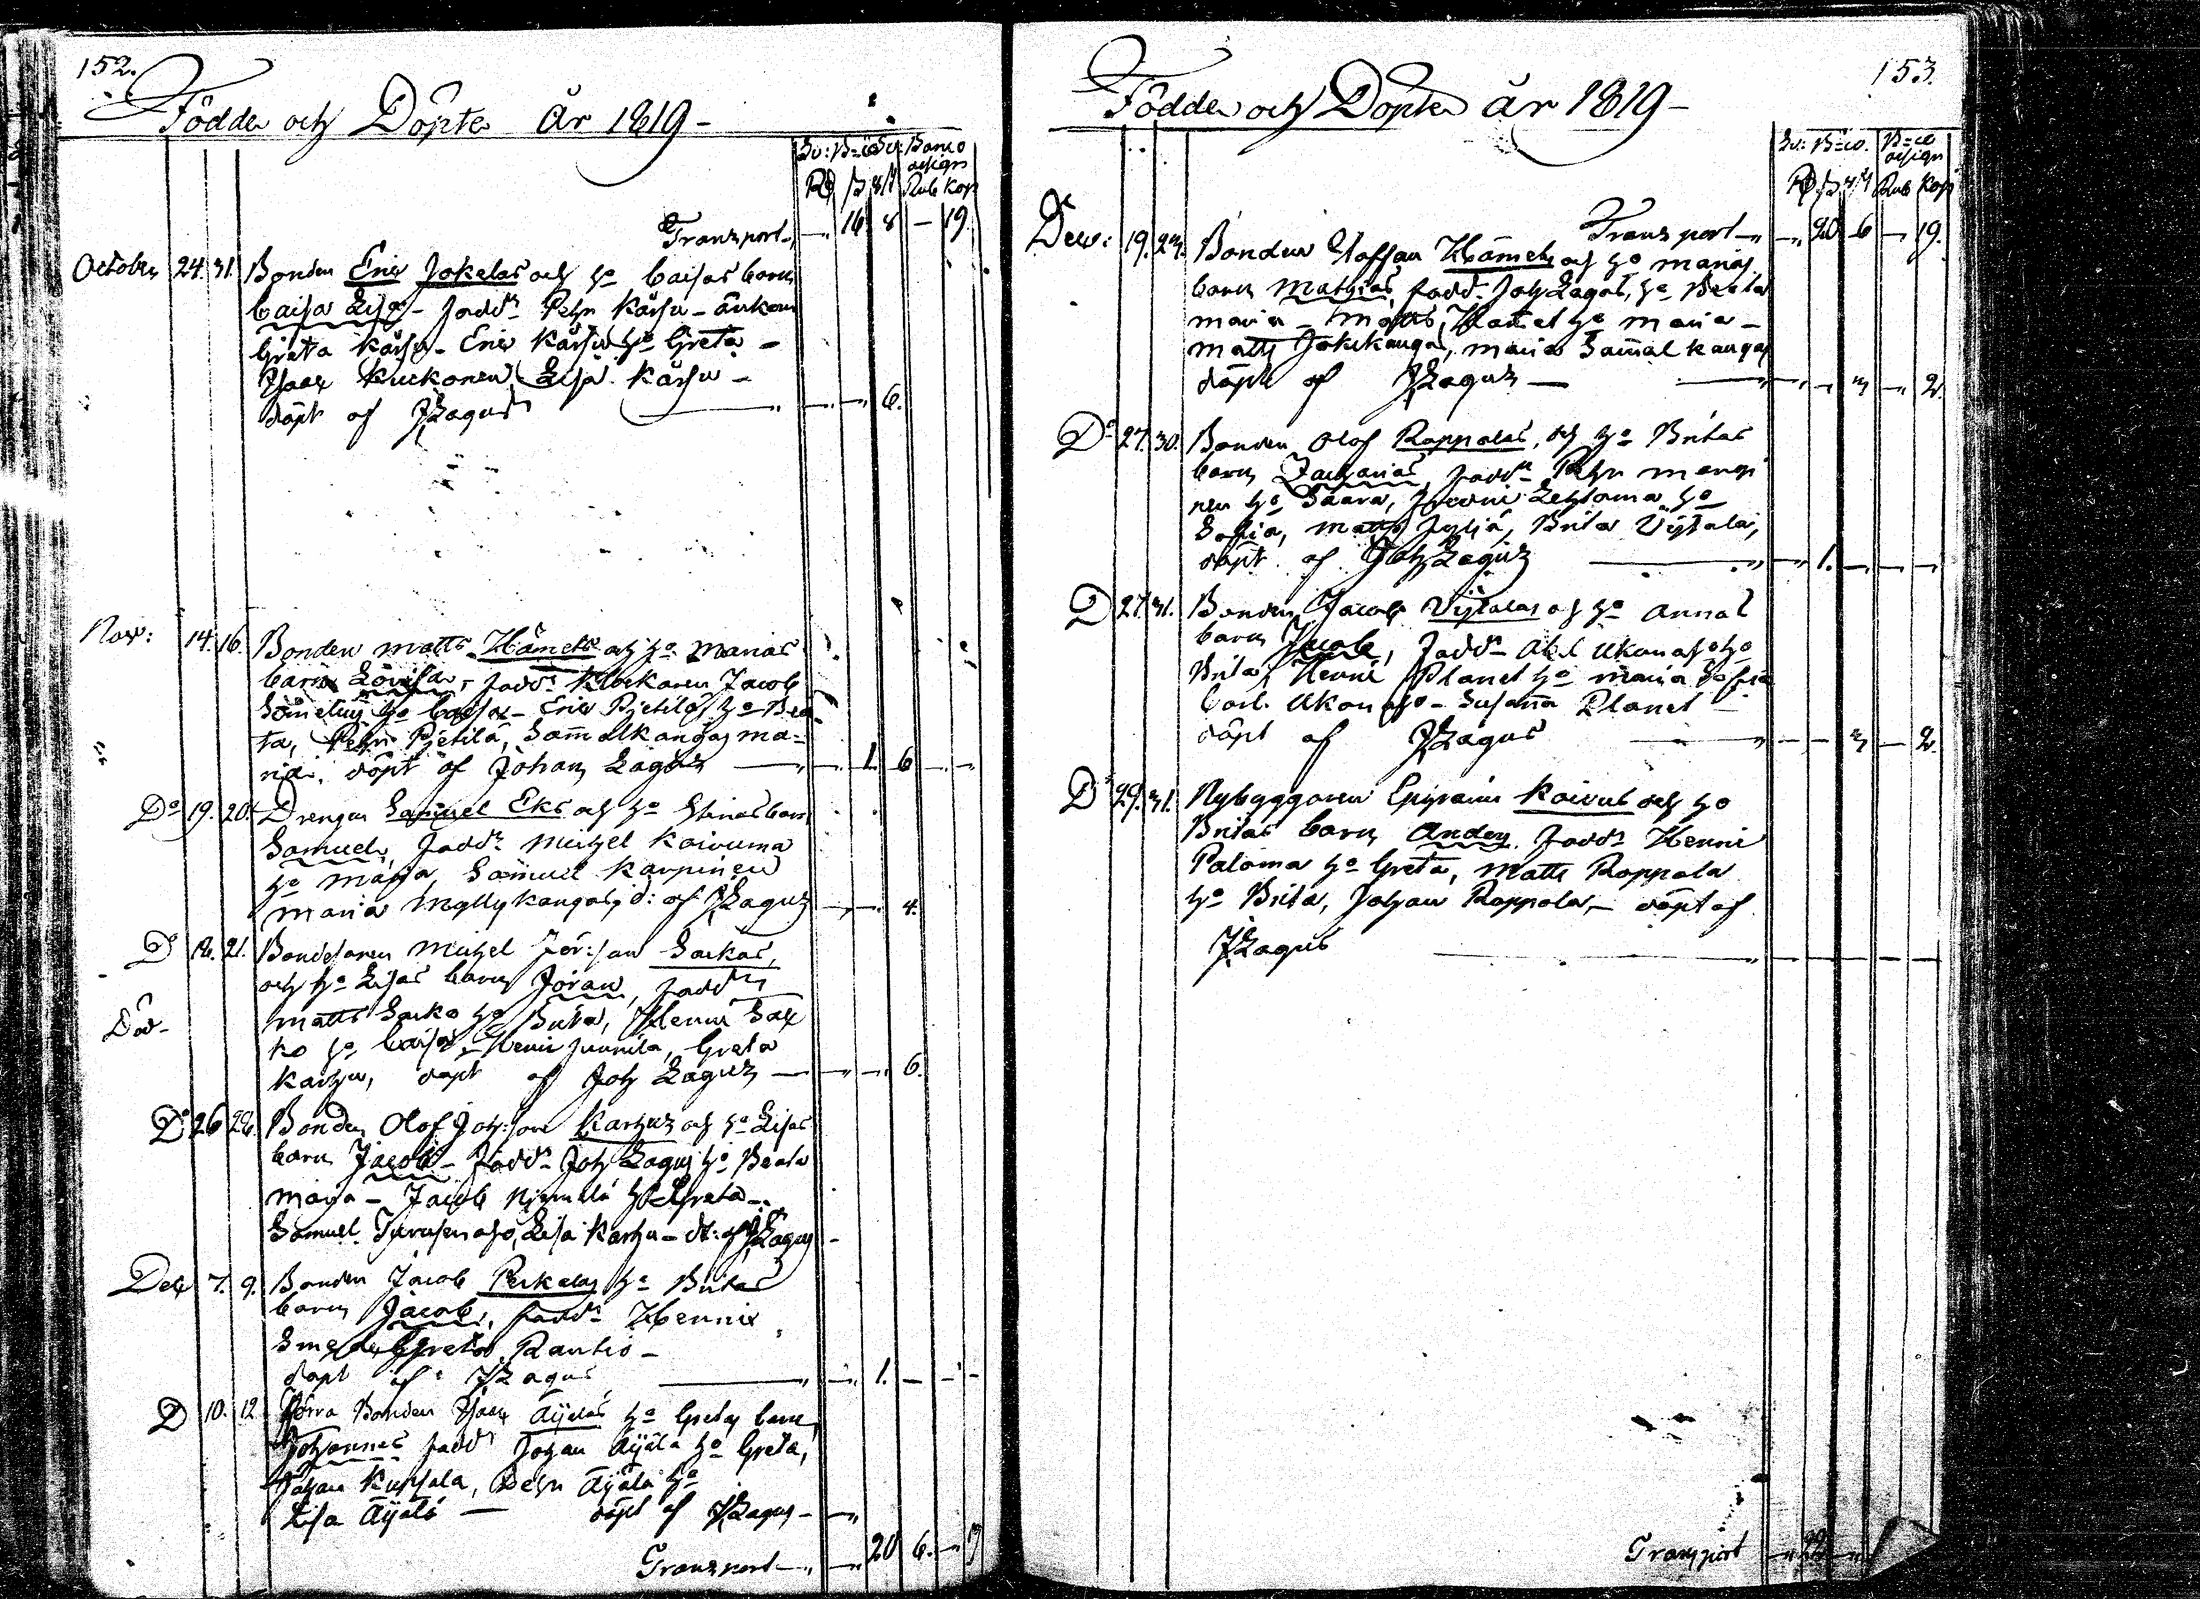 152.
Födde och Döpte år 1819 –
Sv: B=co Sv: Banco
assign
Rd ß rst Rub kop
Transport – 16 8 – 19.
October 24. 31. Bonden Eric Jokelas och ho Caisas barn
Caisa Lisa – fadd: Pehr Kärsu – änkan
Greta Kärsu – Eric Kärsu ho Greta –
Isaac Kuckonen, Lisa Kärsu –
döpt af JZagus — 6.
Nov: 14. 16. Bonden Matts Hämets och ho Marias
barn Lovisa, fadd: Klockaren Jacob
ho Caisa – Eric Pjetilä ho Bea-
ta, Pehr Pjetilä, Sammalkangas Ma=
ria. döpt af Johan Zagus — 1. 6 – –
Do 19. 20. Drengen Samuel Eks och ho Stinas barn
Samuel, fadd: Michel Koivuma
ho Maja, Samuel Karpinen
Maria Myllykangas, d: af JZagus — 4.
Do 21. Bondesonen Michel Jör:son Sarkas,
och ho Lisas barn Jöran, fadd:
Död –
Matts Sarko ho Brita, Henric Sar
ko ho Caisa, Henric Junnila, Greta
Karhu, döpt af Joh Zagus — 6.
Do 26 28. Bonden Olof Joh:son Karhus och ho Lisas
barn Jacob – fadd: Joh Zagus ho Beata
Maja – Jacob Niemelä ho Greta –
Samuel Lisa Karhu – dt: af JZagus –
Dec 7. 9. Bonden Jacob Perkelas ho Britas
barn Jacob, fadd: Henric
Greta Rantio –
döpt af JZagus — 1. – – –
D 10. 12 Förra Bonden Isaac Äijäläs ho Gretas barn
Johannes fadd: Johan Äijälä ho Greta,
Johan Kuusala, Pehr Äijälä ho
Lisa Äijälä — döpt af JZagus –
Transport – 20 6. –
153.
Födde och Döpte år 1819 –
Sv: B=co. B=co
assign
Rd ß rst Rub kop
Transport – 20 6 – 19.
Dec: 19. 23. Bonden Staffan Hämets och ho Marias
barn Mathias, fadd: Joh Zagus, ho Beata
Maria – Matts Hämet ho Maria –
Matts Jokikangas, Maria Sammalkangas
döpt af JZagus — – 3 – 2.
Do 27. 30. Bonden Olof Roppolas, och ho Britas
barn Zacharias, fadd: Pehr Mangi
nen ho Saara, Lehtoma ho
Sofia, Matts Jyljä, Brita Vijtala,
döpt af Joh Zagus — 1. – – –
D 27. 31. Bonden Jacob Vijtalas och ho Annas
barn Jacob, fadd: Abel Ukonaho ho
Brita, Henric Planet ho Maria Sofia
Carl Ukonaho – Susanna Planet –
döpt af JZagus — – 3 – 2.
Do 29. 31. Nybyggaren Ephraim Koivus och ho
Britas barn Anders, fadd: Henric
Paloma ho Greta, Matts Roppola
ho Brita, Johan Roppola, – döpt af
JZagus — – – – –
Transport – 22 –